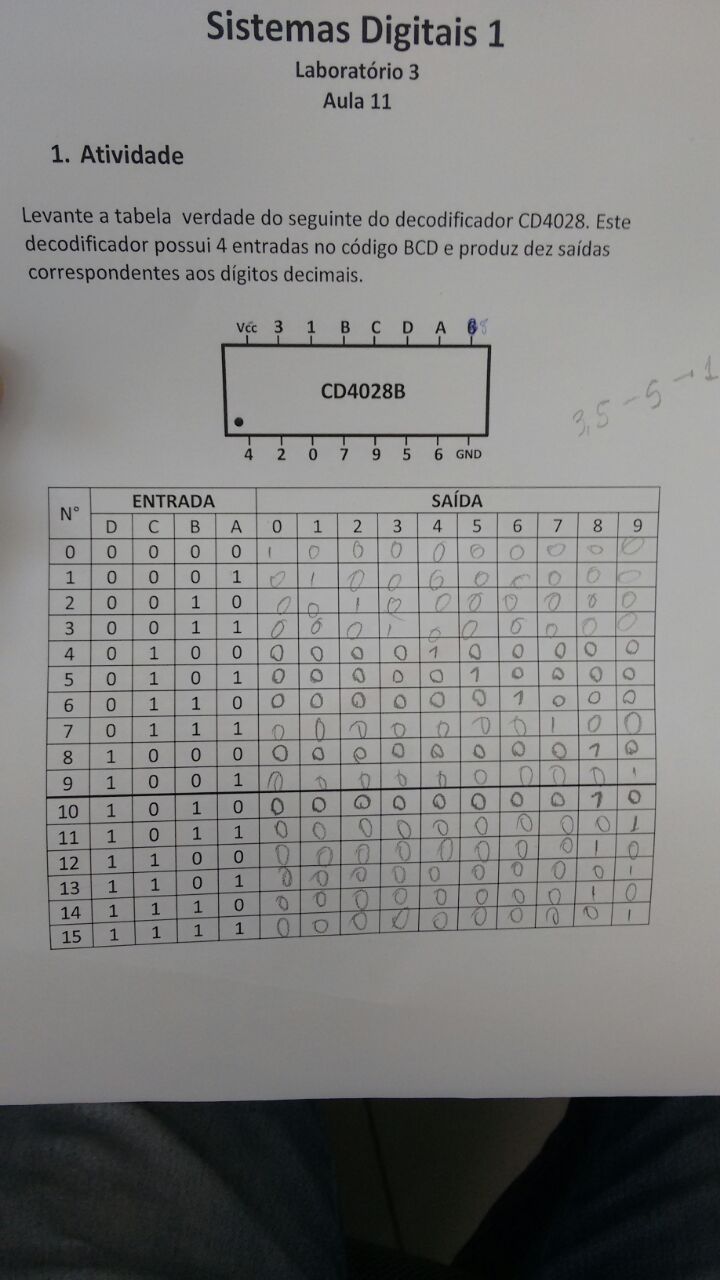 Sistemas Digitais 1
Laboratório 3
Aula 11
1. Atividade
Levante a tabela verdade do seguinte do decodificador CD4028. Este
decodificador possui 4 entradas no código BCD e produz dez saídas
correspondentes aos dígitos decimais.
Vcc 3 1 B C D A 8
CD4028B
4 2 0 7 9 5 6 GND
3,5 - 5 → 1
N° ENTRADA SAÍDA
D C B A 0 1 2 3 4 5 6 7 8 9
0 0 0 0 0 1 0 0 0 0 0 0 0 0 0
1 0 0 0 1 0 1 0 0 0 0 0 0 0 0
2 0 0 1 0 0 0 1 0 0 0 0 0 0 0
3 0 0 1 1 0 0 0 1 0 0 0 0 0 0
4 0 1 0 0 0 0 0 0 1 0 0 0 0 0
5 0 1 0 1 0 0 0 0 0 1 0 0 0 0
6 0 1 1 0 0 0 0 0 0 0 1 0 0 0
7 0 1 1 1 0 0 0 0 0 0 0 1 0 0
8 1 0 0 0 0 0 0 0 0 0 0 0 1 0
9 1 0 0 1 0 0 0 0 0 0 0 0 0 1
10 1 0 1 0 0 0 0 0 0 0 0 0 1 0
11 1 0 1 1 0 0 0 0 0 0 0 0 0 1
12 1 1 0 0 0 0 0 0 0 0 0 0 1 0
13 1 1 0 1 0 0 0 0 0 0 0 0 0 1
14 1 1 1 0 0 0 0 0 0 0 0 0 1 0
15 1 1 1 1 0 0 0 0 0 0 0 0 0 1